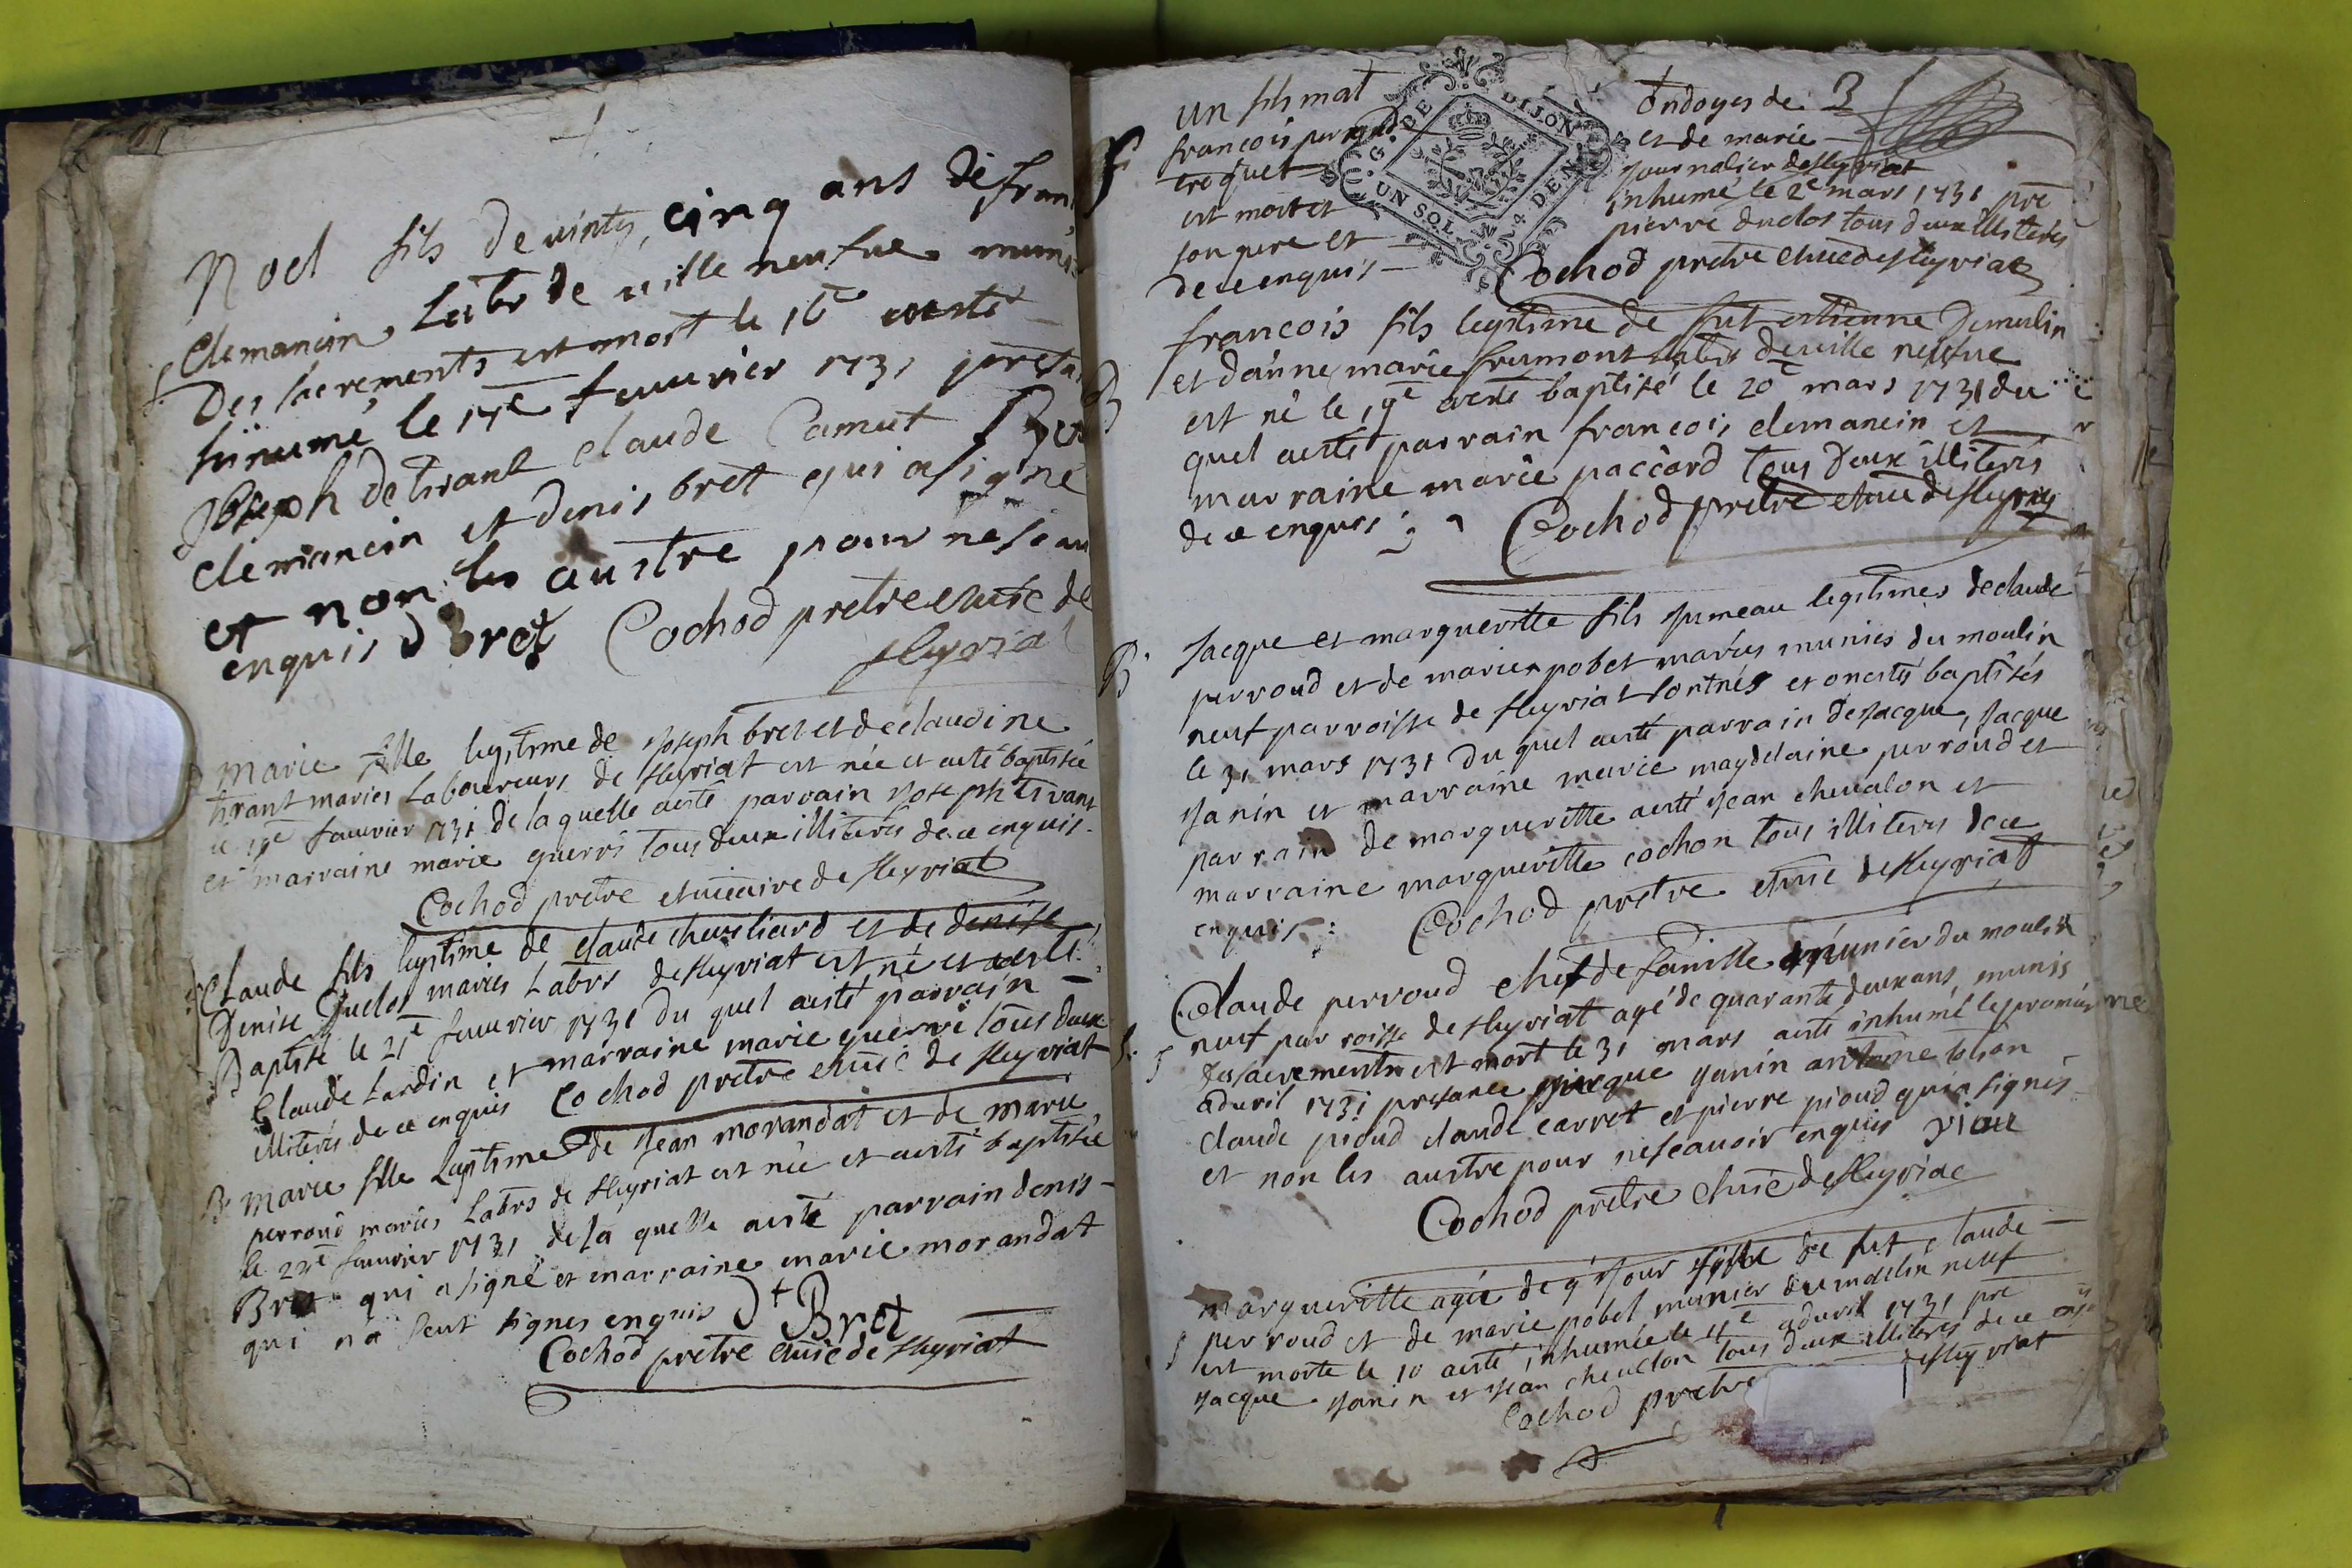 Noel fils de uinty cinq ans de fran
Clemancin Labr de uille neufue muni
Des sacrements est mort le 16e aesté
hinumé le 17e feuurier 1731 presan
Joseph detirant claude Camut
clemancin et denis bret qui a signé
et non les austre pour nescau
enquis D Bret Cochod pretre et curé de
fleyriat
marie fille legitime de joseph bret et de claudine
tirant maries Laboureurs de fleyriat est née et aesté baptisée
le feuurier 1731 de laquelle aesté parrain joseph tirant
et marraine marie guerri tous deux illiterés de ce enquis
Cochod pretre et uicaire de fleyriat
Claude fils legitime de claude cheuiliard et de denise
Denise Duclos maries Labrs de fleyriat est né et aesté
Baptisé le 21e feuurier 1731 du quel aesté parrain
Claude Lardin et marraine marie guerri tous deux
illiterés de ce enquis Cochod pretre et curé de fleyriat
B marie fille Legitime de jean morandat et de marie
perroud maries Labrs de fleyriat est née et aesté baptisée
le 22e feuurier 1731 de la quelle aesté parrain denis
Bret qui a signé et marraine marie morandat
qui na seut signes enquis Dt Bret
Cochod pretre curé de fleyriat
G. DE DIJON
UN SOL 4 DEN
un fils mat ondoyes de 3
francois perroud et de marie
croquet journalier de fleyriat
est mort et inhumé le 2e mars 1731 pre
son pere et pierre duclos tous deux illiterés
de ce enquis Cochod pretre et curé de fleyriat
B francois fils legitime de fut estienne Demulin
et danne marie frumont labrs de uille neufue
est né le 19e aesté baptisé le 20e mars 1731 du
quel aesté parrain francois clemancin et
marraine marie paccard tous deux illiterés
de ce enquis Cochod pretre et curé de fleyriat
B jacque et marguerite fils jumeau legitimes de claude
perroud et de marie pobet mariés muniés du moulin
neuf parroisse de fleyriat sont nés et onestés baptisés
le 31 mars 1731 du quel aesté parrain de jacque, jacque
janin et marraine marie magdelaine perroud et
parrain de marguerite aesté jean cheualon et
marraine marguerite cochon tous illiterés de ce
enquis : Cochod pretre et curé de fleyriat
Claude perroud chef de famille munier du moulin
neuf parroisse de fleyriat agé de quarante deux ans, munis
des sacrements est mort le 31 mars aesté inhumé le premier
daduril 1731 presance jacque janin antoine
claude pioud claude carret et pierre pioud qui a signés
et non les austre pour nescauoir enquis
Cochod pretre et curé de fleyriac
marguerite agée de 9 jour fille de fut claude
S perroud et de marie pobet munier du moulin neuf
est morte le 10 aesté inhumée le 11e aduril 1731 pre
jacque janin et jean cheualon tous deux illiterés de ce
Cochod pretre fleyriat